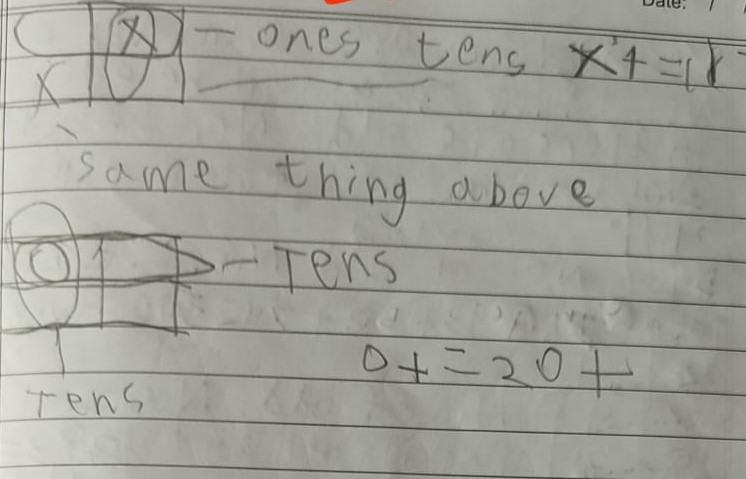 Date: / /
X - ones tens
X
same thing above
O 1 - Tens
O+=20+
Tens